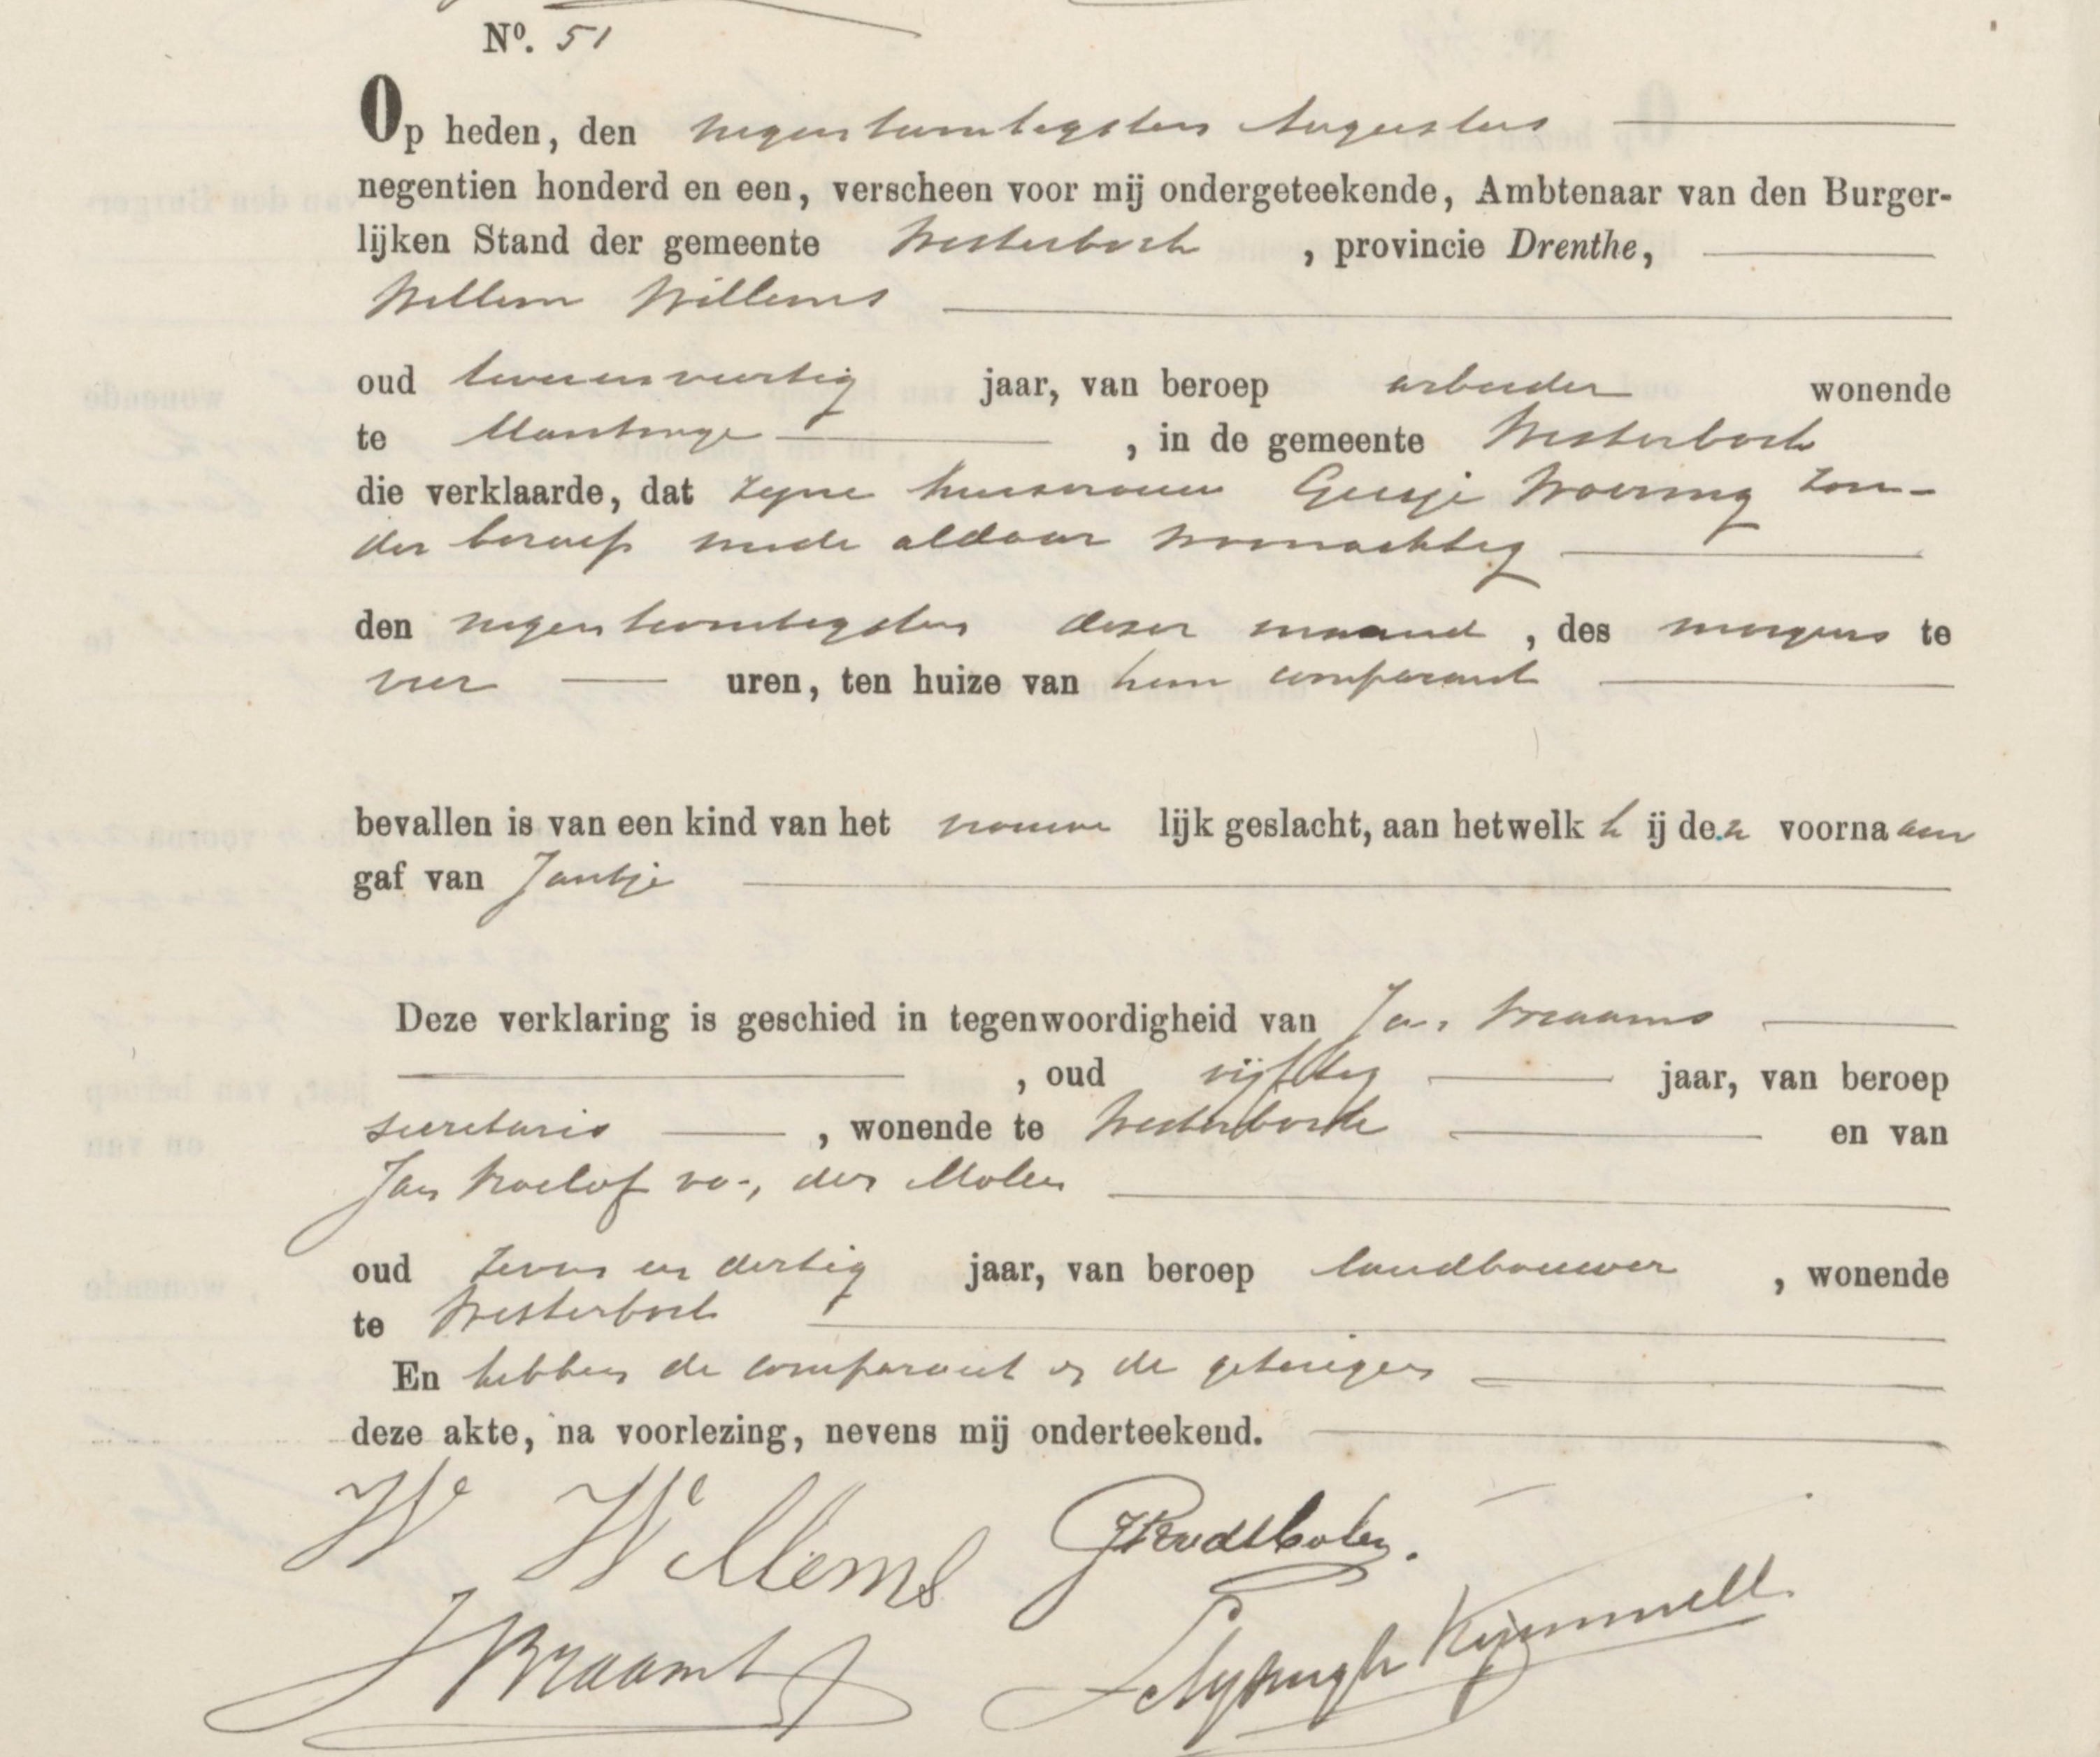 Nº. 51
Op heden, den negentwintigsten Augustus
negentien honderd en een, verscheen voor mij ondergeteekende, Ambtenaar van den Burger-
lijken Stand der gemeente Westerbork , provincie Drenthe,
Willem Willems
oud tweeenveertig jaar, van beroep arbeider wonende
te Mantinge , in de gemeente Westerbork
die verklaarde, dat zijne huisvrouw Geesje Woering zon-
der beroep mede aldaar woonachtig
den negentwintigsten dezer maand , des morgens te
vier uren, ten huize van hem comparant
bevallen is van een kind van het vrouwe lijk geslacht, aan hetwelk h ij de.n voorna am
gaf van Jantje
Deze verklaring is geschied in tegenwoordigheid van Jan Braams
, oud vijftig jaar, van beroep
secretaris , wonende te Westerbork en van
Jan Roelof van der Molen
oud zeven en dertig jaar, van beroep landbouwer , wonende
te Westerbork
En hebben de comparant en de getuigen
deze akte, na voorlezing, nevens mij onderteekend.
W Willems
J Braams Kymmell